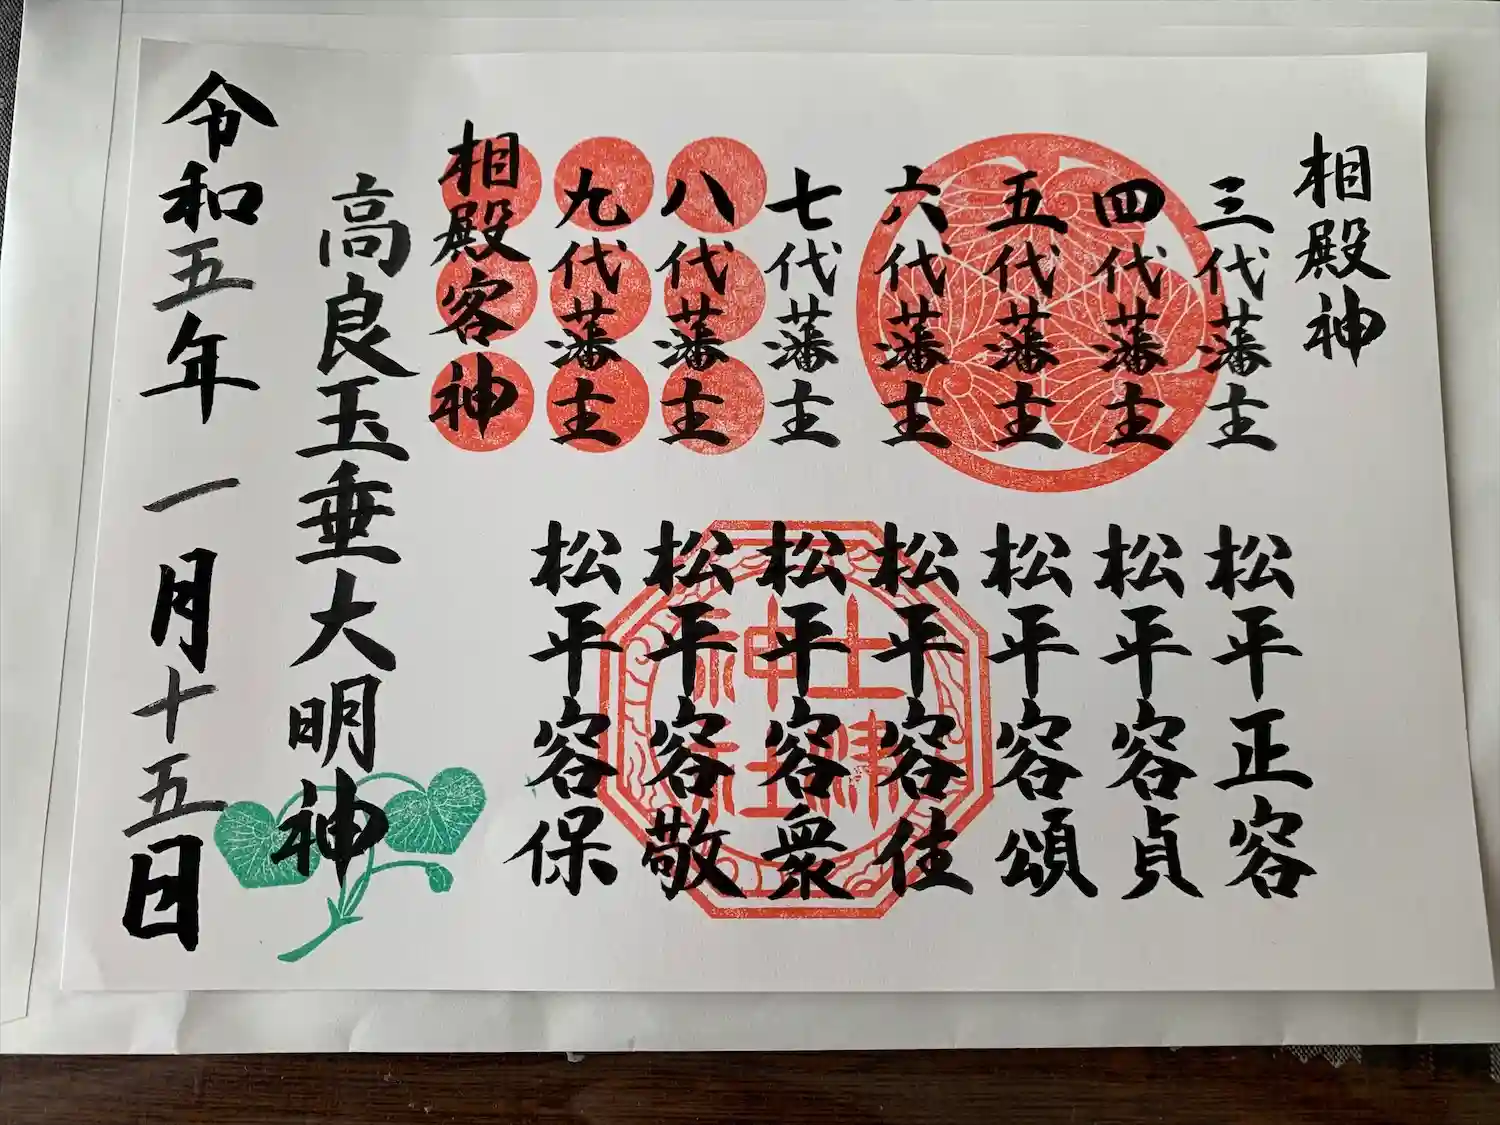 相殿神
三代藩主 松平正容
四代藩主 松平容貞
五代藩主 松平容頌
六代藩主 松平容住
七代藩主 松平容衆
八代藩主 松平容敬
九代藩主 松平容保
相殿客神
高良玉垂大明神
令和五年 一月十五日
土津
神社